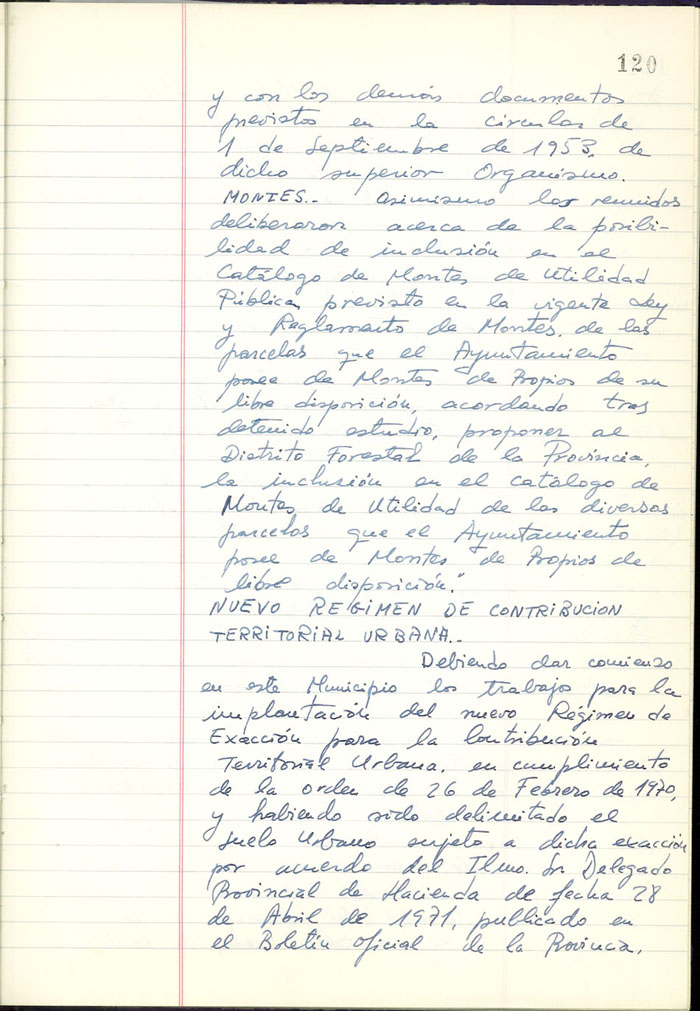 120
y con los demás documentos
previstos en la circular de
1 de Septiembre de 1953, de
dicho superior Organismo.
MONTES.- Asimismo los reunidos
deliberaron acerca de la posibi-
lidad de inclusión en el
Catálogo de Montes de Utilidad
Pública, previsto en la vigente Ley
y Reglamento de Montes, de las
parcelas que el Ayuntamiento
posee de Montes de Propios de su
libre disposición, acordando tras
detenido estudio, proponer al
Distrito Forestal de la Provincia,
la inclusión en el catálogo de
Montes de Utilidad de las diversas
parcelas que el Ayuntamiento
posee de Montes de Propios de
libre disposición."
NUEVO REGIMEN DE CONTRIBUCION
TERRITORIAL URBANA..
Debiendo dar comienzo
en este Municipio los trabajos para la
implantación del nuevo Régimen de
Exacción para la Contribución
Territorial Urbana, en cumplimiento
de la orden de 26 de Febrero de 1970,
y habiendo sido delimitado el
suelo Urbano sujeto a dicha exacción
por acuerdo del Ilmo. Sr Delegado
Provincial de Hacienda de fecha 28
de Abril de 1971, publicado en
el Boletín oficial de la Provincia,